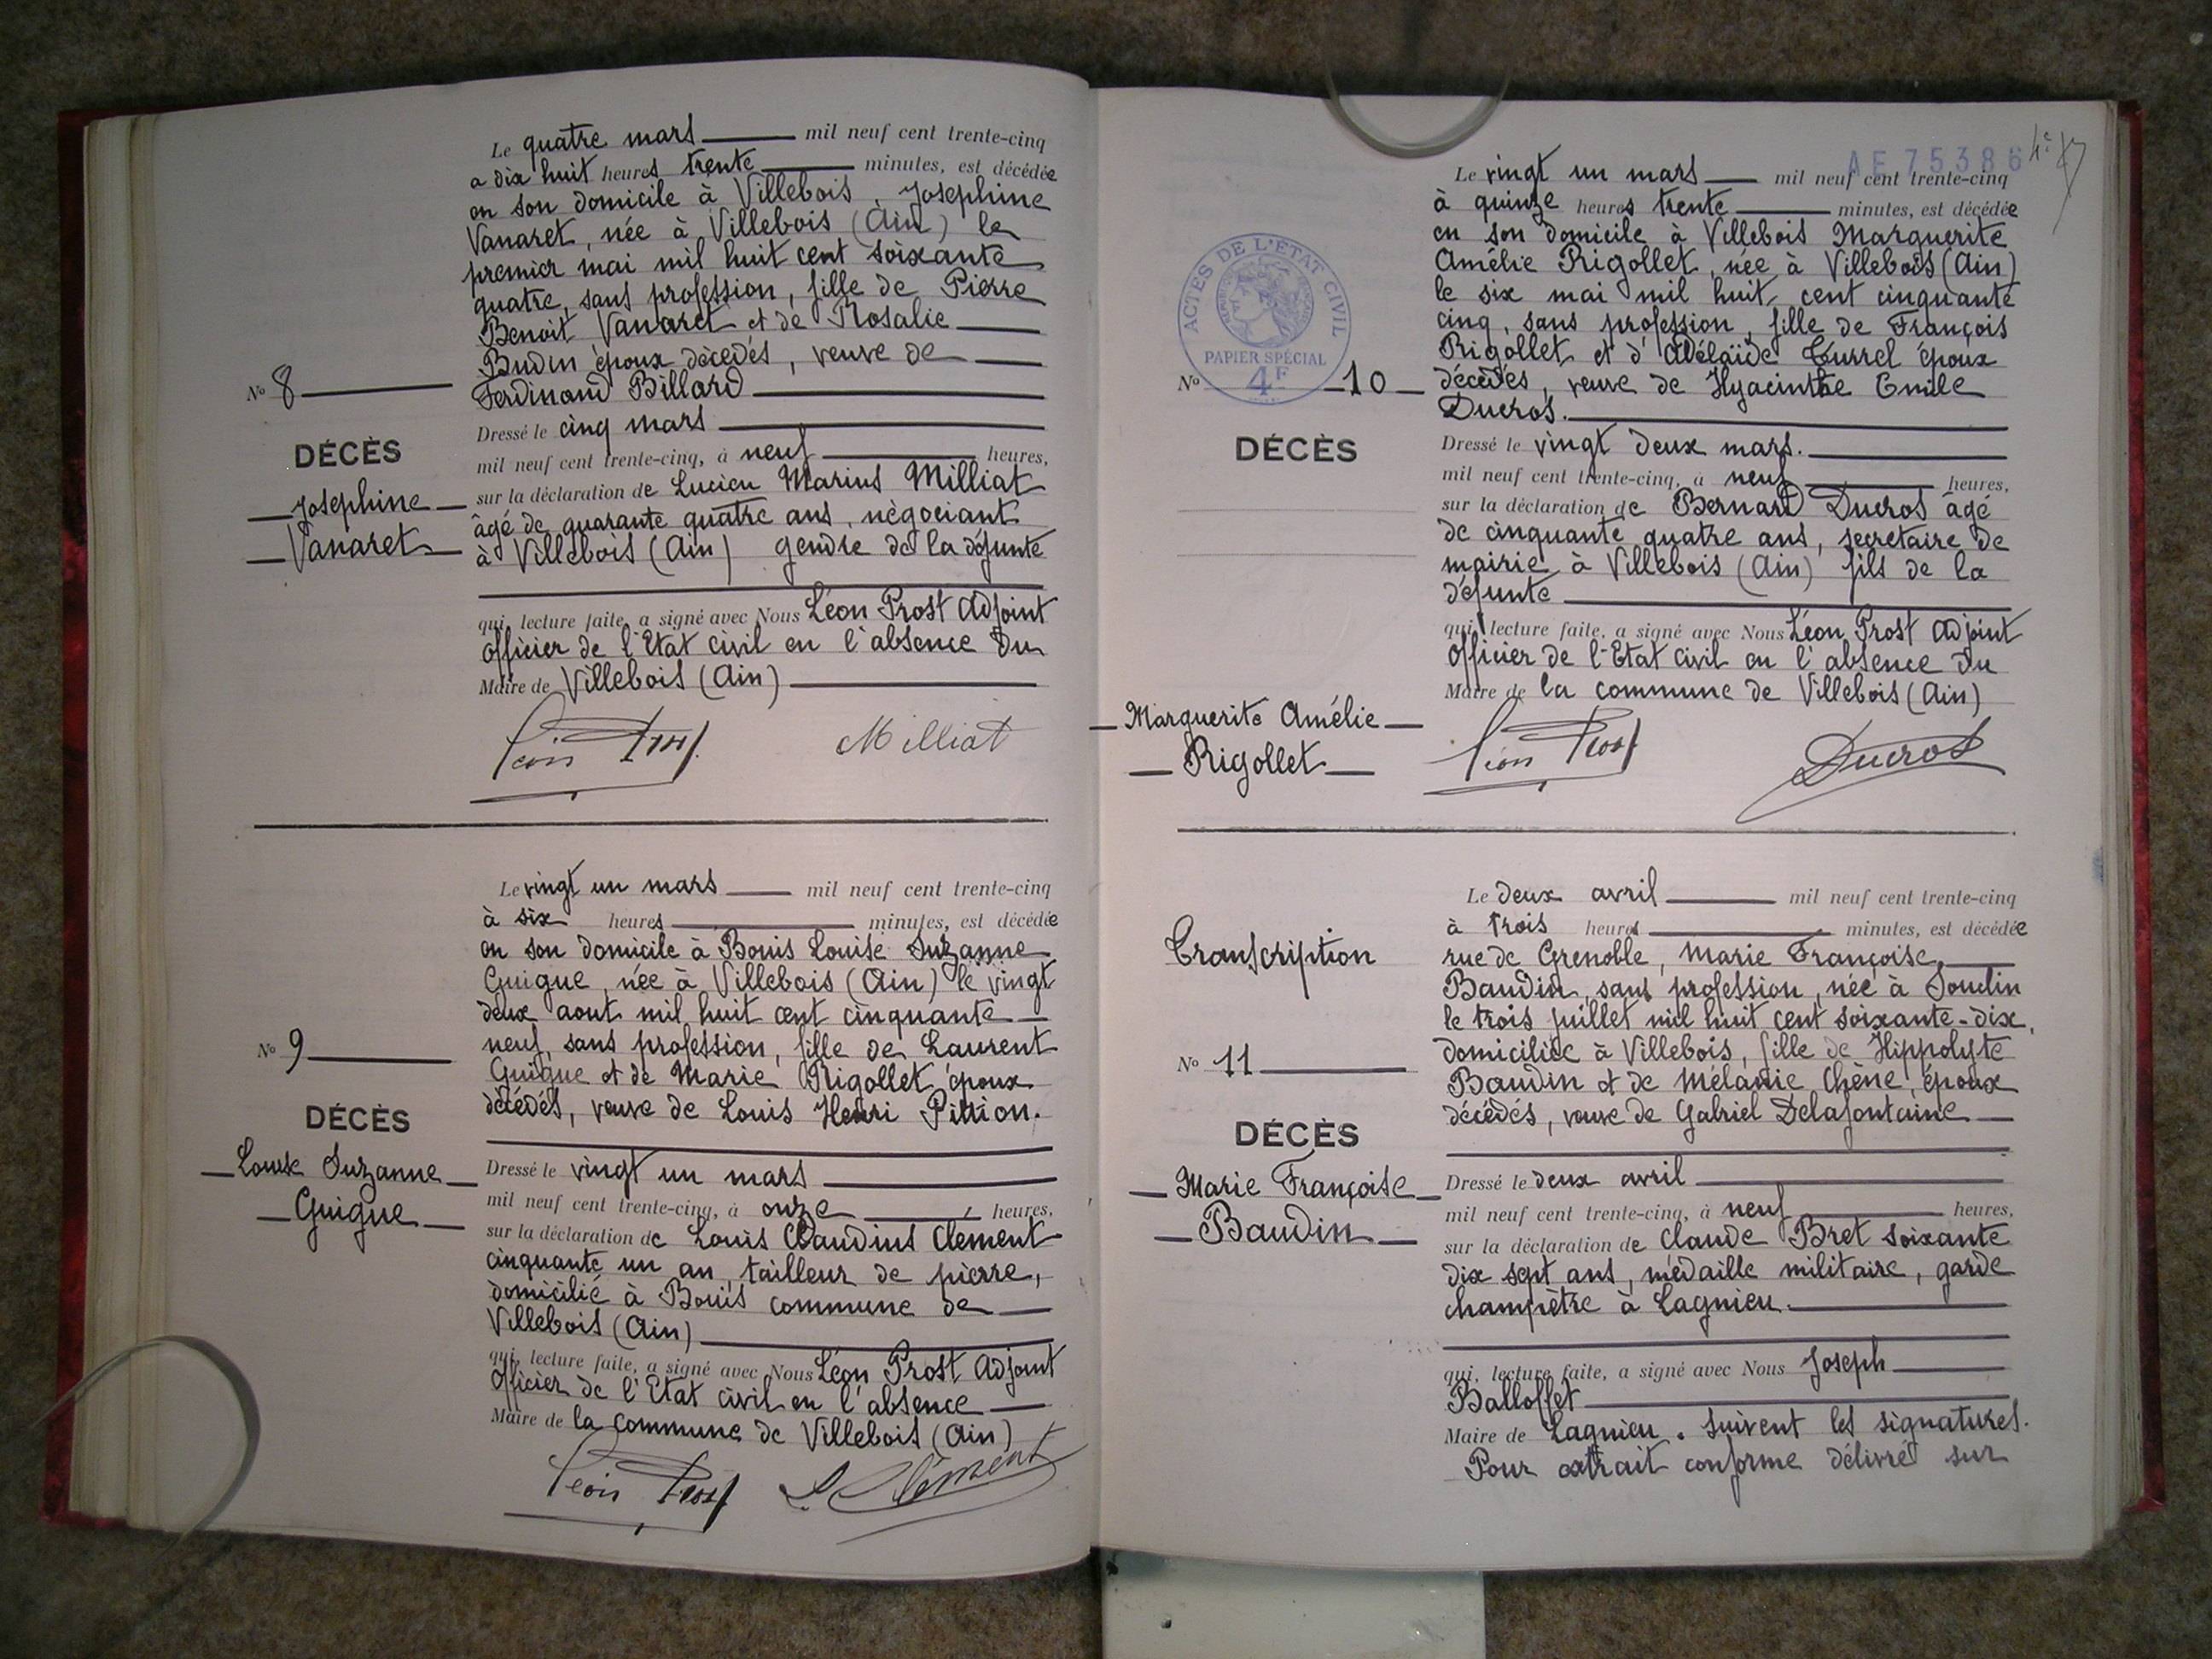 Le quatre mars mil neuf cent trente-cinq
a dix huit heures trente minutes, est décédée
en son domicile à Villebois, Josephine
Vanaret, née à Villebois (Ain) le
premier mai mil huit cent soixante
quatre, sans profession, fille de Pierre
Benoit Vanaret et de Rosalie
Budin époux décédés, veuve de
Ferdinand Billard
No 8
DÉCÈS
Josephine
Vanaret
Dressé le cinq mars
mil neuf cent trente-cinq, à neuf heures,
sur la déclaration de Lucien Marius Milliat
âgé de quarante quatre ans, négociant
à Villebois (Ain) gendre de la défunte
qui, lecture faite, a signé avec Nous Léon Prost Adjoint
Officier de l'Etat civil en l'absence du
Maire de Villebois (Ain)
Léon Prost Milliat
Le vingt un mars mil neuf cent trente-cinq
à six heures minutes, est décédée
en son domicile à Bouis Louise Suzanne
Guigue, née à Villebois (Ain) le vingt
deux aout mil huit cent cinquante
neuf, sans profession, fille de Laurent
Guigue et de Marie Rigollet époux
décédés, veuve de Louis Henri Pittion.
No 9
DÉCÈS
Louise Suzanne
Guigue
Dressé le vingt un mars
mil neuf cent trente-cinq, à onze heures,
sur la déclaration de Louis Claudius Clément
cinquante un an, tailleur de pierre,
domicilié à Bouis commune de
Villebois (Ain)
qui, lecture faite, a signé avec Nous Léon Prost Adjoint
Officier de l'Etat civil en l'absence
Maire de la commune de Villebois (Ain)
Léon Prost L. Clément
AE 75386
Le vingt un mars mil neuf cent trente-cinq
à quinze heures trente minutes, est décédée
en son domicile à Villebois Marguerite
Amélie Rigollet, née à Villebois (Ain)
le six mai mil huit cent cinquante
cinq, sans profession, fille de François
Rigollet et d'Adélaïde Currel époux
décédés, veuve de Hyacinthe Emile
Ducros.
ACTES DE L'ÉTAT CIVIL
PAPIER SPÉCIAL
4F
No 10
DÉCÈS
Marguerite Amélie
Rigollet
Dressé le vingt deux mars.
mil neuf cent trente-cinq, à neuf heures,
sur la déclaration de Bernard Ducros âgé
de cinquante quatre ans, secretaire de
mairie à Villebois (Ain) fils de la
défunte
qui, lecture faite, a signé avec Nous Léon Prost Adjoint
Officier de l'Etat civil en l'absence du
Maire de la commune de Villebois (Ain)
Léon Prost Ducros
Le deux avril mil neuf cent trente-cinq
à trois heures minutes, est décédée
rue de Grenoble, Marie Françoise
Baudin, sans profession, née à Soudin
le trois juillet mil huit cent soixante-dix,
domiciliée à Villebois, fille de Hippolyte
Baudin et de Mélanie Chêne, époux
décédés, veuve de Gabriel Delafontaine
Transcription
No 11
DÉCÈS
Marie Françoise
Baudin
Dressé le deux avril
mil neuf cent trente-cinq, à neuf heures,
sur la déclaration de Claude Bret soixante
dix sept ans, médaille militaire, garde
champêtre à Lagnieu.
qui, lecture faite, a signé avec Nous Joseph
Balloffet
Maire de Lagnieu. Suivent les signatures.
Pour extrait conforme délivré sur